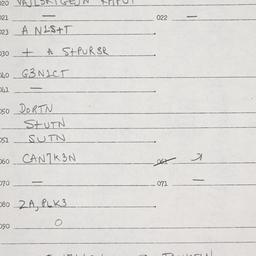 020 VAJLSKTGEJN KAPUT
021 — 022 —
023 A N1S+T
030 + A S+PURSR
040 G3N1CT
041 —
050 DORTN
S+UTN
051 SUTN
060 CAN7K3N 061
070 — 071 —
080 2A, PLK3
090 O